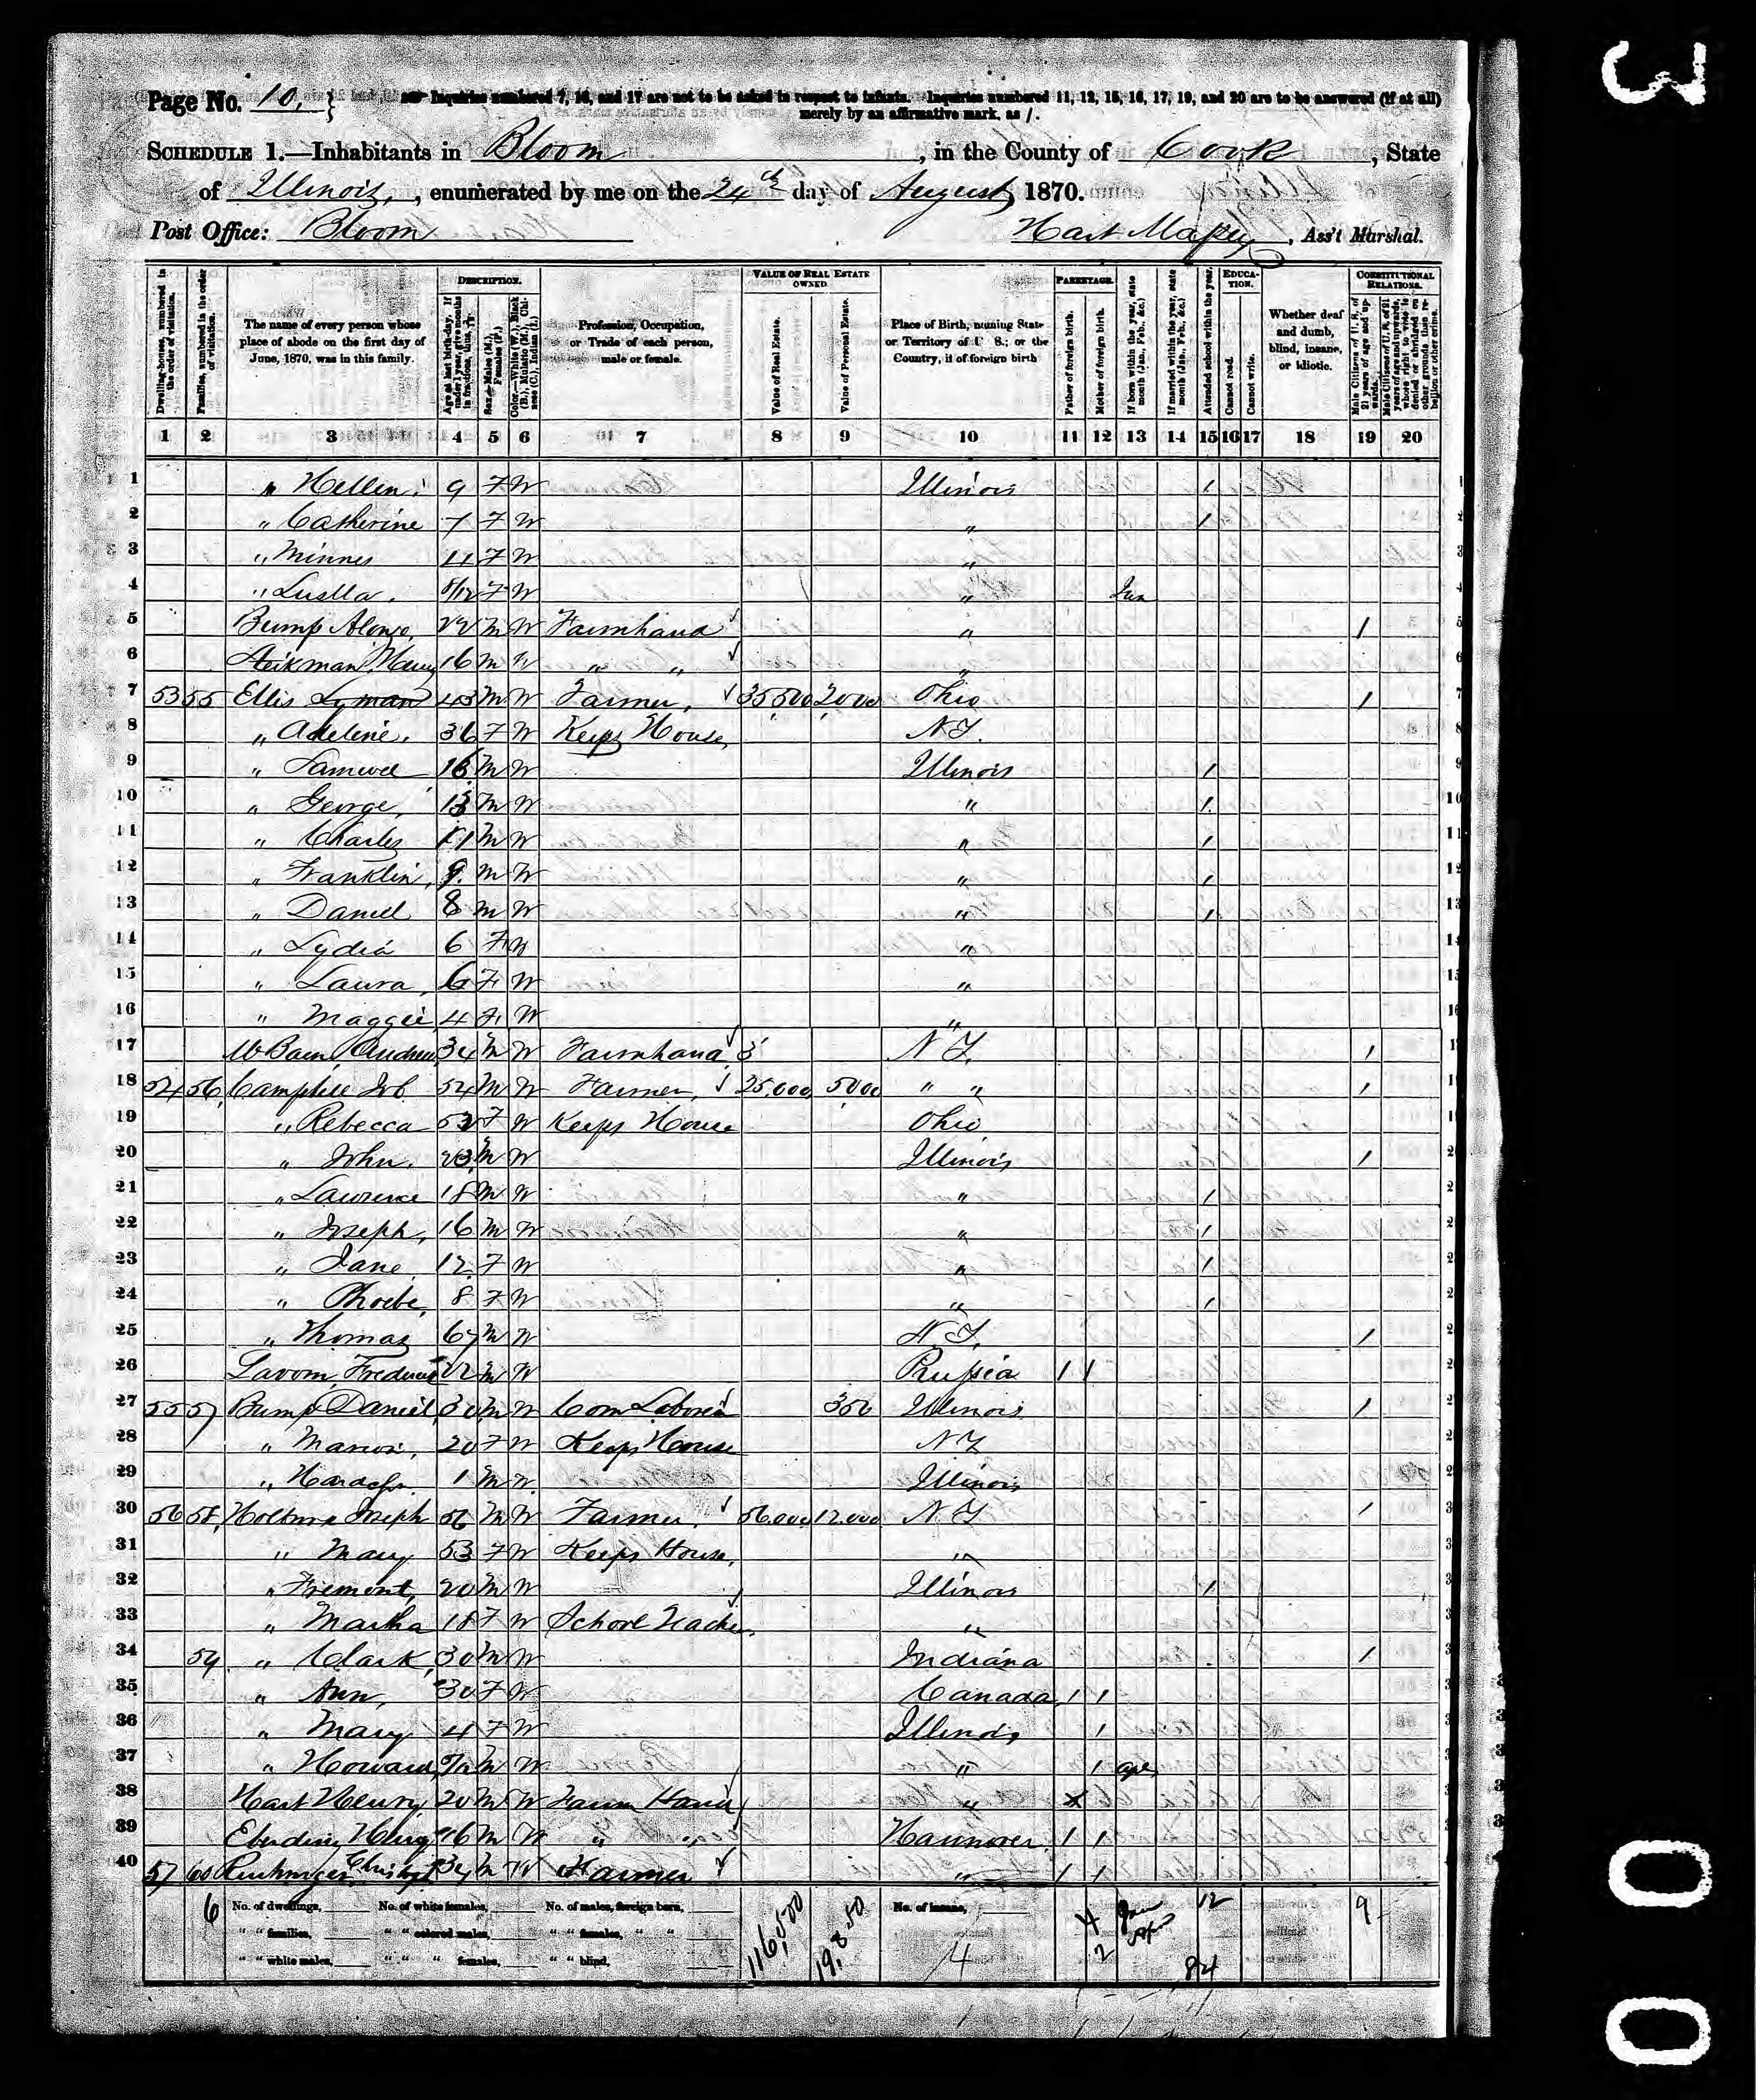 Page No. 10,
Inquiries numbered 7, 16, and 17 are not to be asked in respect to infants. Inquiries numbered 11, 12, 15, 16, 17, 19, and 20 are to be answered (if at all)
merely by an affirmative mark, as /.
SCHEDULE 1.—Inhabitants in Bloom, in the County of Cook, State
of Illinois, enumerated by me on the 24th day of August, 1870.
Post Office: Bloom
Hart , Ass't Marshal.
Dwelling-houses, numbered in the order of visitation.
Families, numbered in the order of visitation.
The name of every person whose place of abode on the first day of June, 1870, was in this family.
DESCRIPTION.
Age at last birth-day. If under 1 year, give months in fractions, thus, 3/12.
Sex.—Males (M.), Females (F.)
Color.—White (W.), Black (B.), Mulatto (M.), Chinese (C.), Indian (I.)
Profession, Occupation, or Trade of each person, male or female.
VALUE OF REAL ESTATE OWNED.
Value of Real Estate.
Value of Personal Estate.
Place of Birth, naming State or Territory of U. S.; or the Country, if of foreign birth
PARENTAGE.
Father of foreign birth.
Mother of foreign birth.
If born within the year, state month (Jan., Feb., &c.)
If married within the year, state month (Jan., Feb., &c.)
Attended school within the year.
EDUCATION.
Cannot read.
Cannot write.
Whether deaf and dumb, blind, insane, or idiotic.
CONSTITUTIONAL RELATIONS.
Male Citizens of U. S. of 21 years of age and upwards.
Male Citizens of U. S. of 21 years of age and upwards, whose right to vote is denied or abridged on other grounds than rebellion or other crime.
1 2 3 4 5 6 7 8 9 10 11 12 13 14 15 16 17 18 19 20
1 " Hellen 9 F W Illinois /
2 " Catherine 7 F W " /
3 " Minnes 4 F W "
4 " Luella 8/12 F W " Jan
5 Bump Alonzo, 22 M W Farmhand " /
6 16 M W " " "
7 53 55 Ellis Lyman 43 M W Farmer, 35,500 2000 Ohio /
8 " Adeline, 36 F W Keeps House, N Y.
9 " Samuel 16 M W Illinois /
10 " George, 13 M W " /
11 " Charles 11 M W " /
12 " Franklin, 9 M W " /
13 " Daniel 8 M W " /
14 " Lydia 6 F W "
15 " Laura, 6 F W "
16 " Maggie, 4 F W "
17 McBain, Andrew, 34 M W Farmhand N Y. /
18 54 56 Campbell Job 54 M W Farmer, 25,000 5000 " " /
19 " Rebecca 52 F W Keeps House Ohio
20 " John. 23 M W Illinois /
21 " Lawrence 18 M W " /
22 " Joseph, 16 M W " /
23 " Jane 12 F W " /
24 " Phoebe, 8 F W " /
25 " Thomas 67 M W N Y. /
26 Lavom, Frederick 22 M W Prussia / /
27 55 57 Bump Daniel, 30 M W Com Laborer 350 Illinois /
28 " Marion, 20 F W Keeps House N Y
29 " 1 M W Illinois
30 56 58 Joseph 56 M W Farmer. 56,000 12,000 N Y /
31 " Mary 53 F W Keeps House, "
32 " Fremont, 20 M W Illinois /
33 " Martha 18 F W School Teacher, "
34 59 " Clark, 30 M W Indiana /
35 " Ann, 30 F W Canada / /
36 " Mary 4 F W Illinois /
37 " Howard, M W " / Apr
38 Hart Henry 20 M W Farm Hand " x
39 Ebending Henry 16 M W " " Hannover / /
40 57 60 34 M W Farmer " / /
6 No. of dwellings, No. of white females, No. of males, foreign born, 116,500 19,850 No. of insane, 4 Jan 12 9
" " families, " " colored males, " " females, " " Apr
" " white males, " " " females, " " blind, 4 2 84
3
0
0